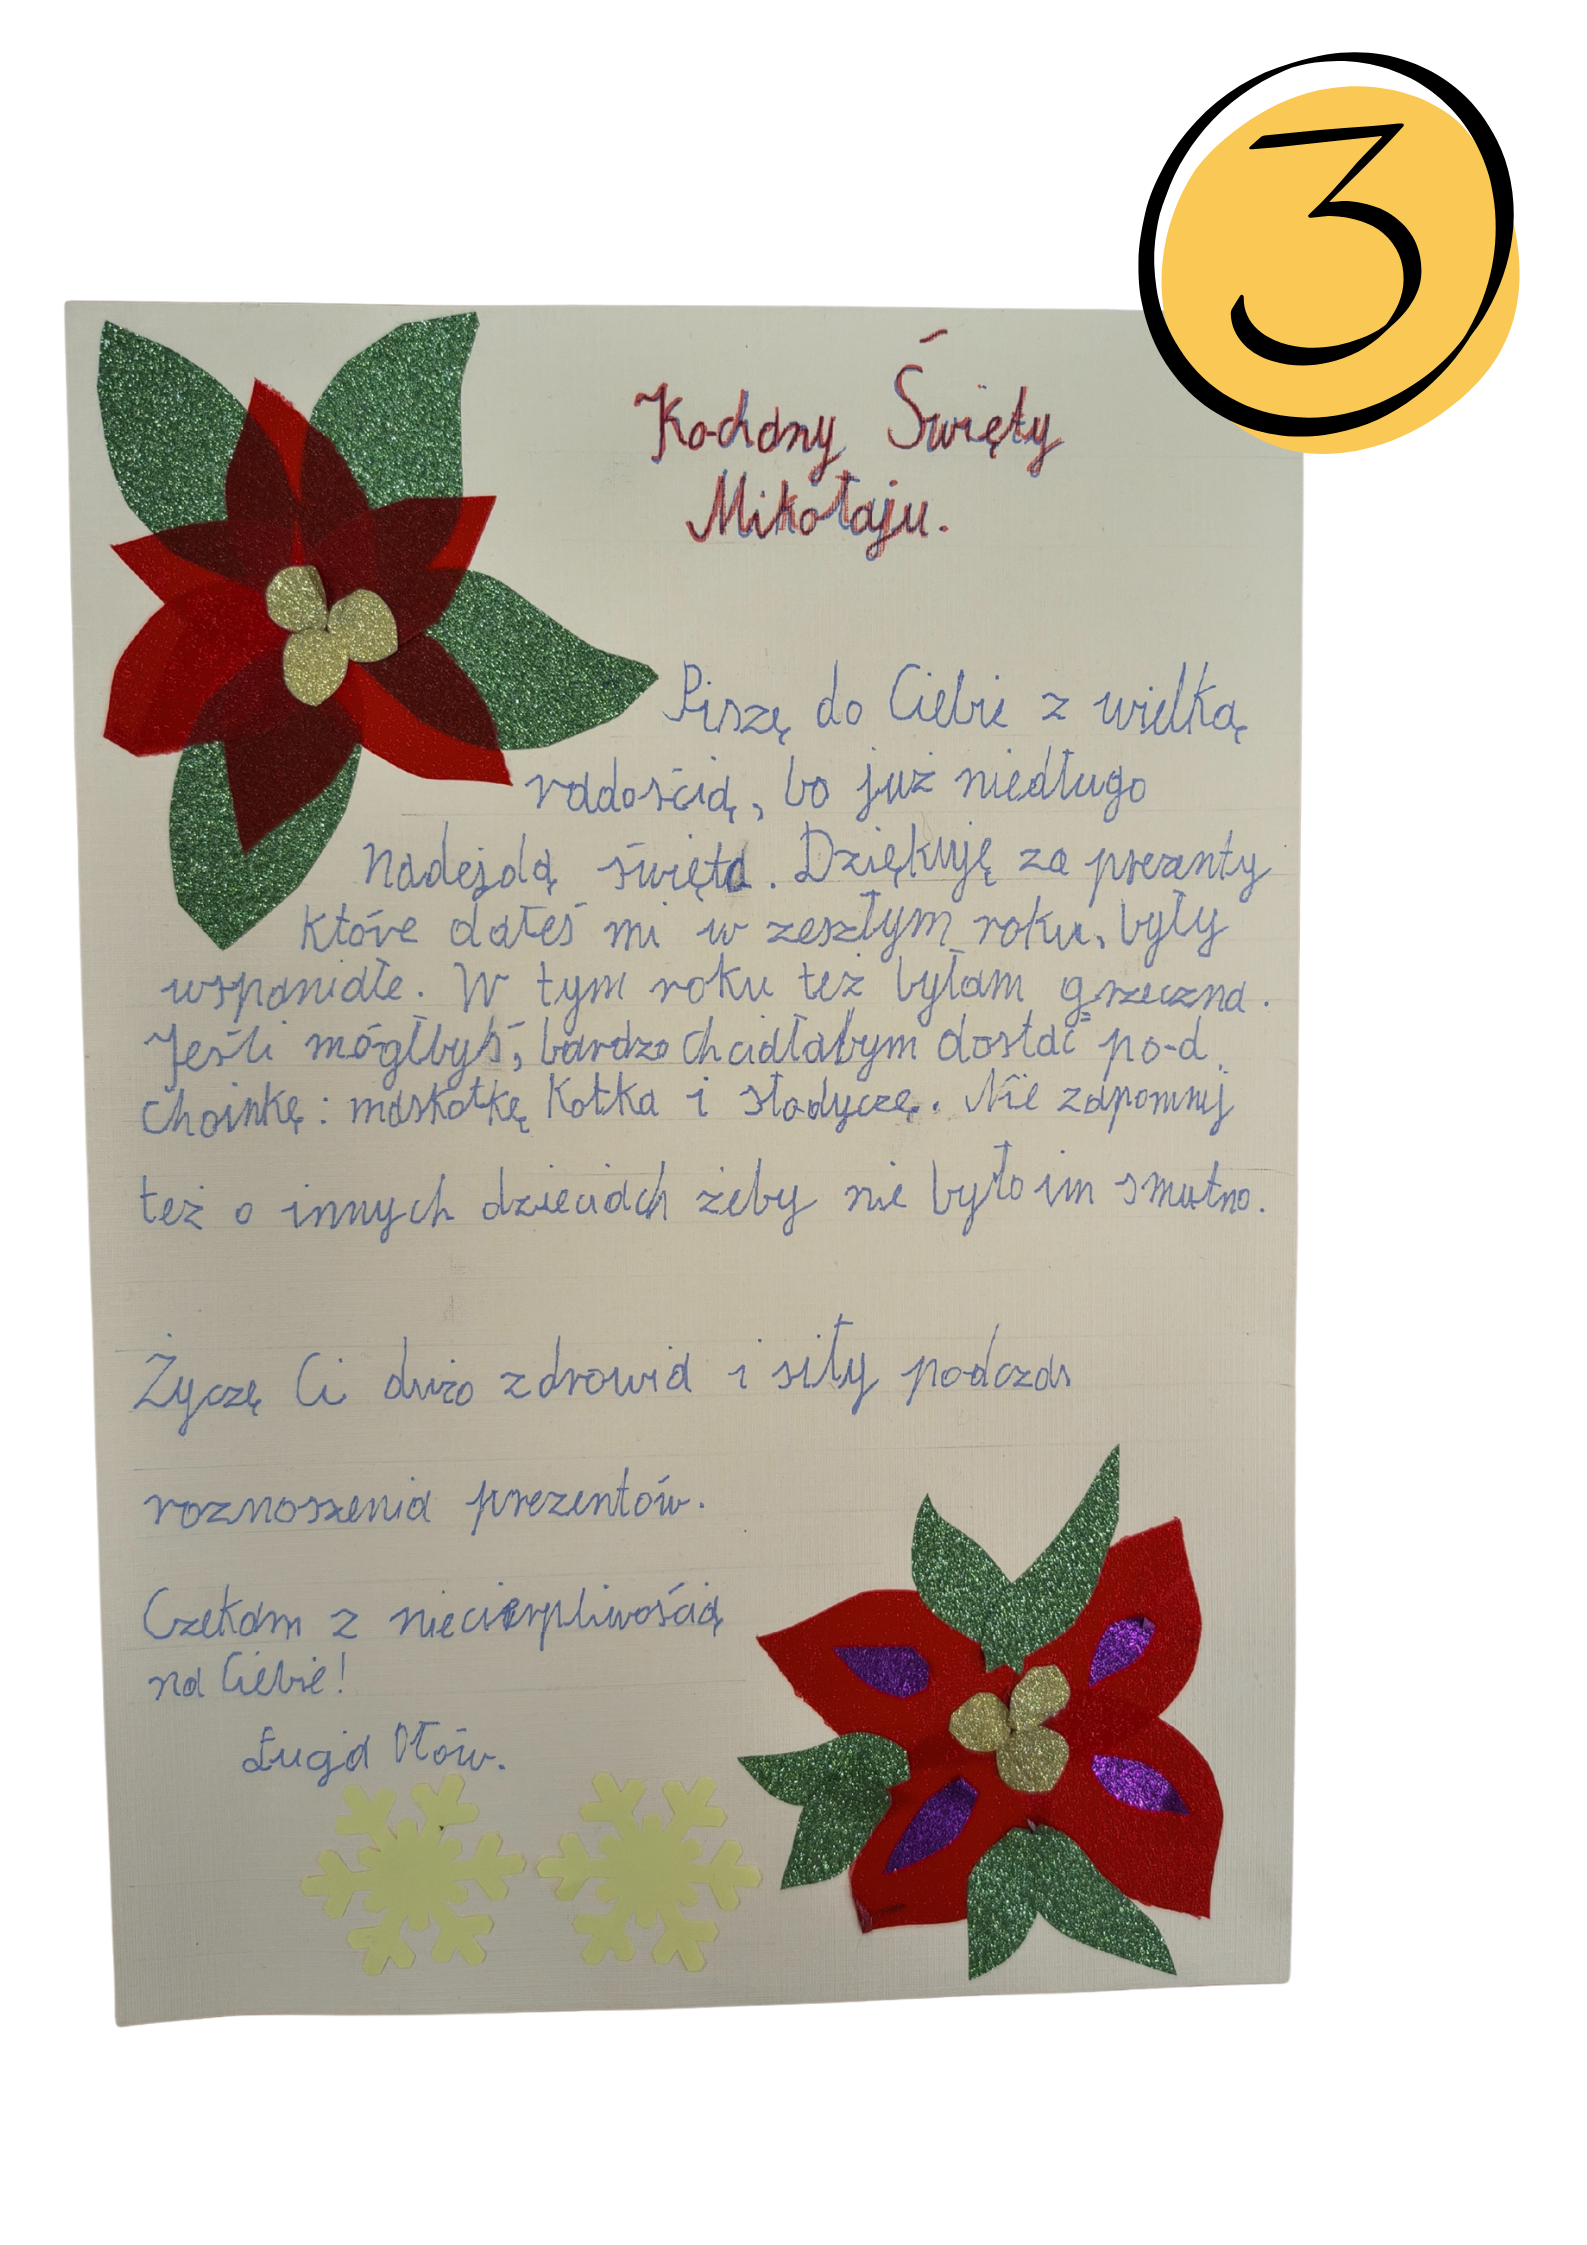 3
Kochany Święty
Mikołaju.
Piszę do Ciebie z wielką
radością, bo już niedługo
nadejdą święta. Dziękuję za prezenty
które dałeś mi w zeszłym roku, były
wspaniałe. W tym roku też byłam grzeczna.
Jeśli mógłbyś, bardzo chciałabym dostać pod
choinkę: maskotkę kotka i słodycze. Nie zapomnij
też o innych dzieciach żeby nie było im smutno.
Życzę Ci dużo zdrowia i siły podczas
roznoszenia prezentów.
Czekam z niecierpliwością
na Ciebie!